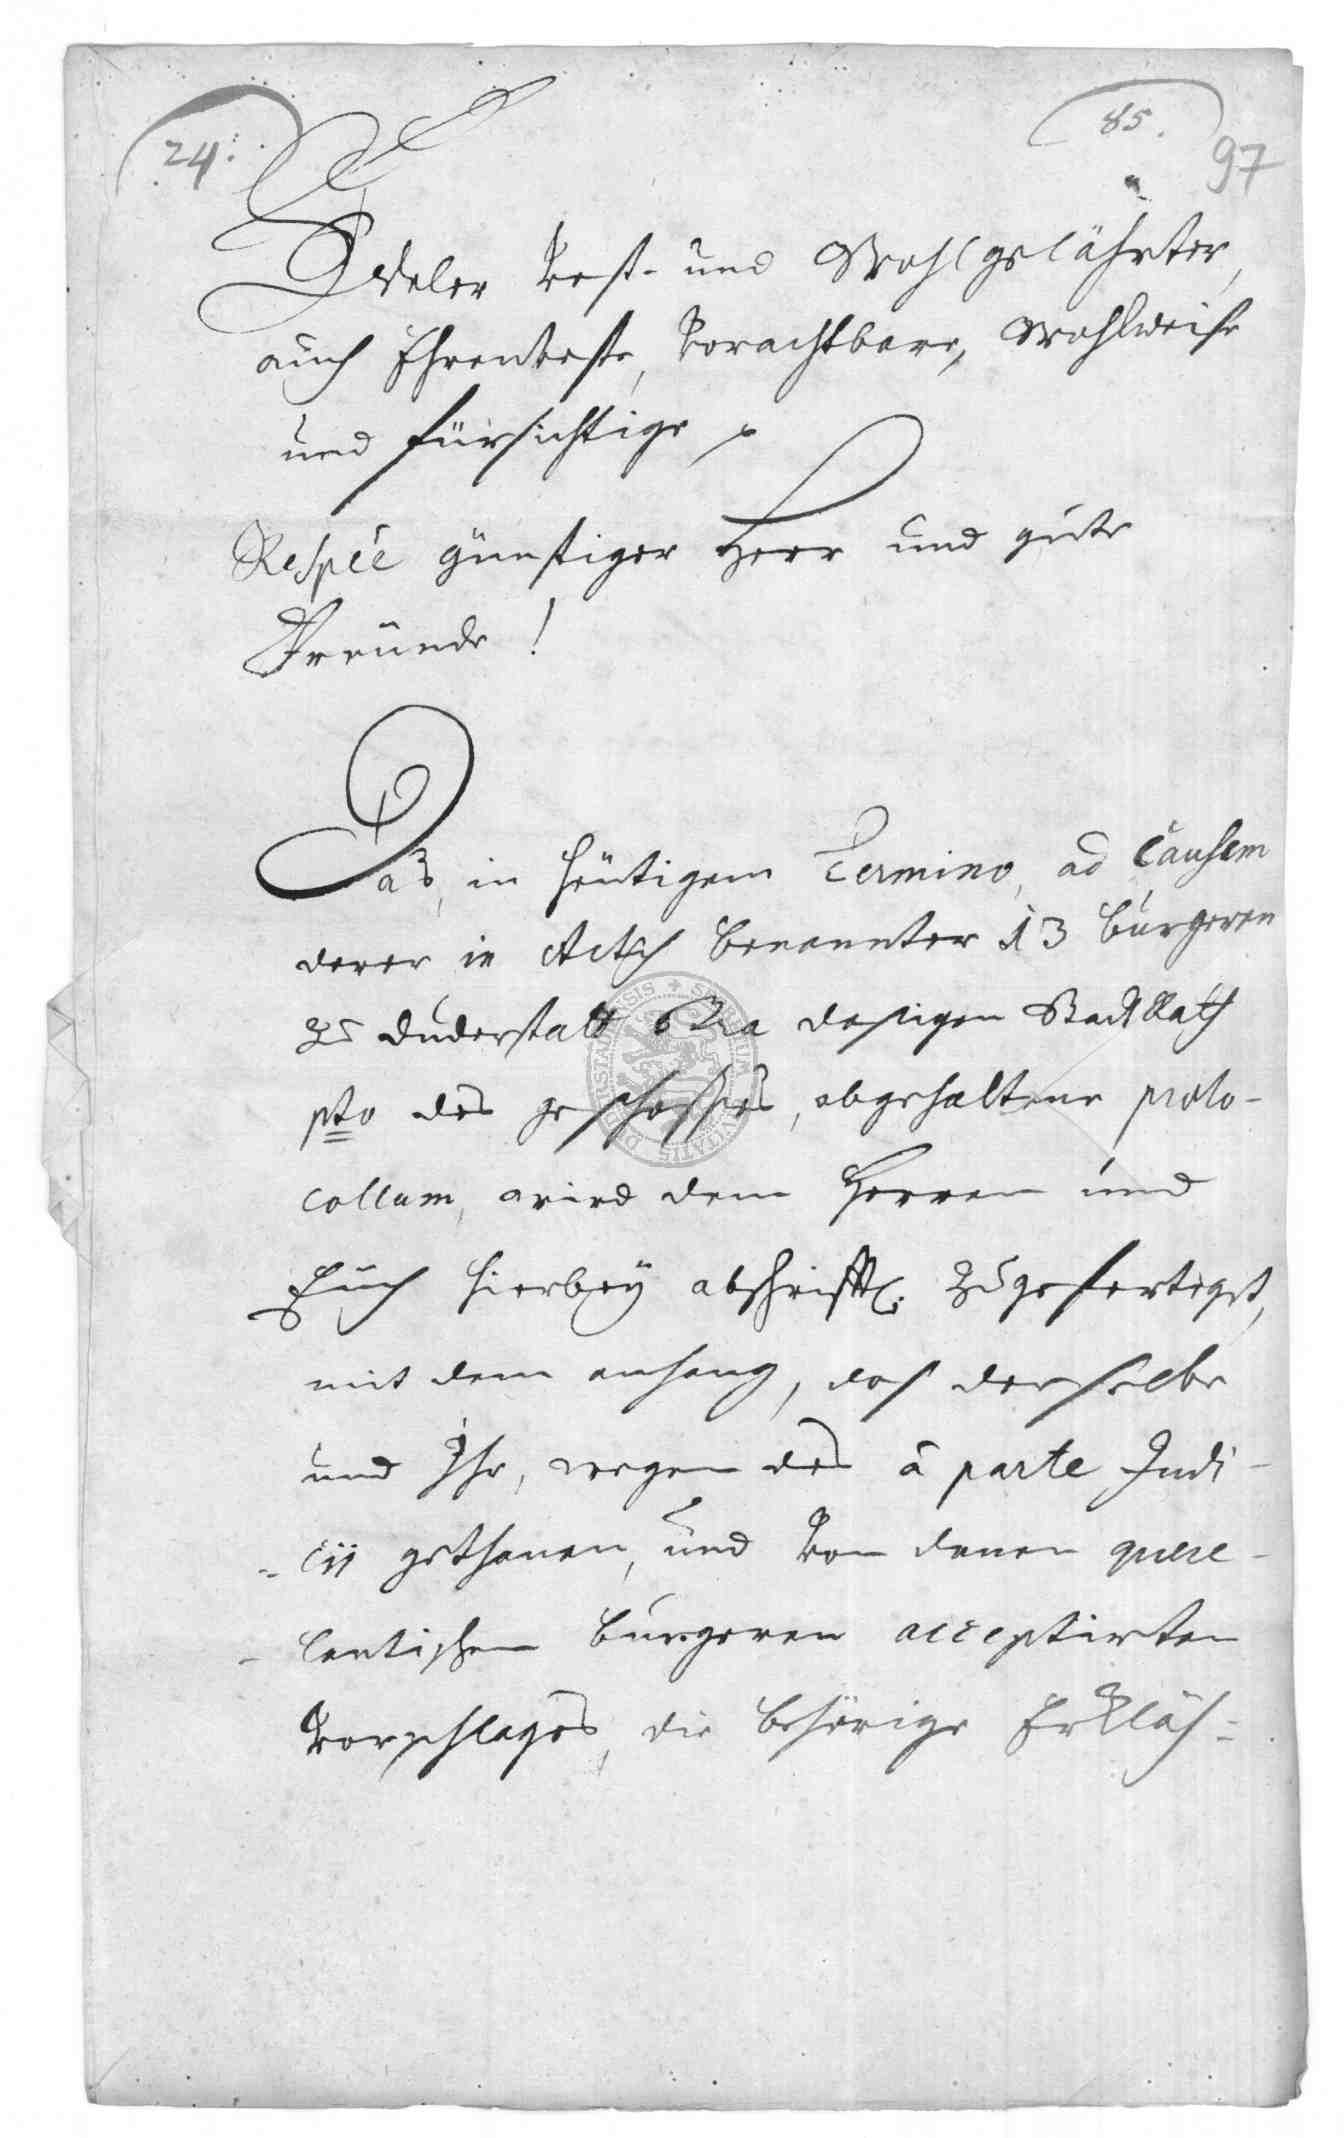 24.
85.
97
Edeler Vest- und Wohlgelährter,
auch Ehrenveste, Vorachtbare, Wohlweise
und fürsichtige
Respée günstiger Herr und gute
Freünde!
Das, in heütigem Termino, ad Causam
derer in Actis benannter 13 bürgeren
zu duderstatt Ctra dasigen Stadt Rath
pto des geschosses, abgehaltene proto-
collum, wird dem Herren und
Euch hierbeÿ abschrifftl. zugefertiget,
mit dem anhang, das derselbe
und Ihr, wegen des à parte Judi-
cii gethanen, und von denen quere-
lantischen bürgeren acceptirten
Vorschlages, die behörige Erkläh-